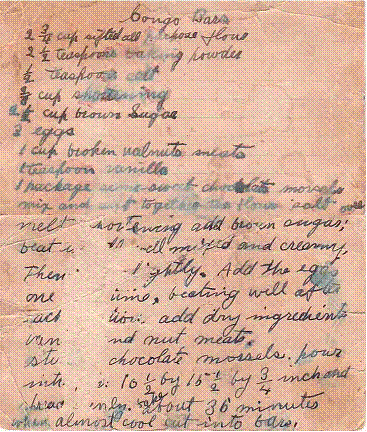 Congo Bars
2 3/4 cup sifted all purpose flour
2 1/2 teaspoons baking powder
1/2 teaspoon salt
2/3 cup shortening
2 1/4 cup brown Sugar
3 eggs
1 cup broken walnuts meats
1 teaspoon vanilla
1 package semi-sweet chocolate morsels
mix and sift together the flour salt
melt shortening add brown sugar;
beat and creamy,
Then Add the eggs
one time, beating well after
add dry ingredients
and nut meats.
chocolate mossels. pour
10 1/2 by 15 1/2 by 3/4 inch and
about 35 minutes
when almost cool cut into bars.